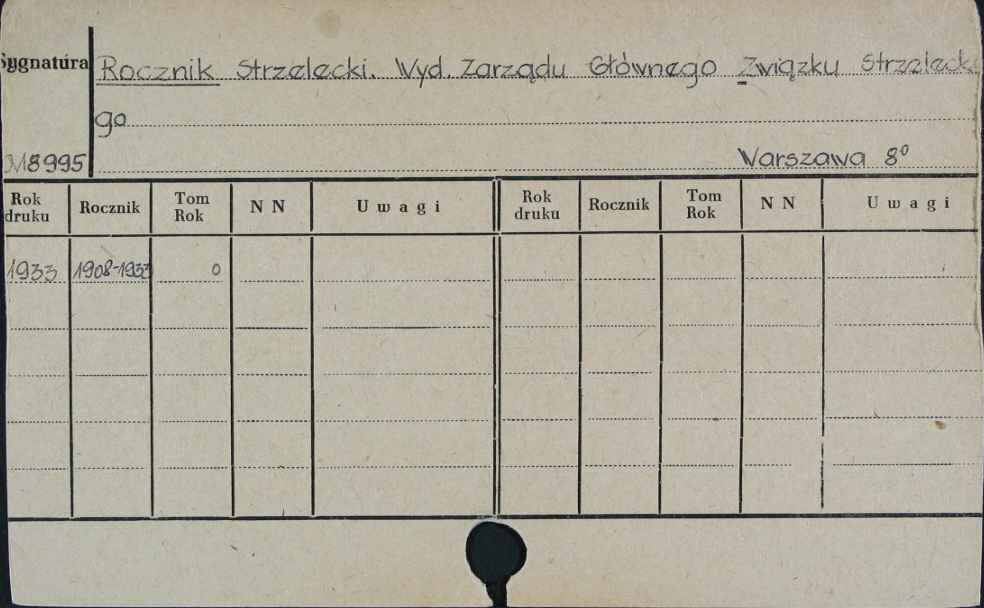 Sygnatura
Rocznik Strzelecki. Wyd. Zarządu Głównego Związku Strzelecki
go
M8995
Warszawa 8°
Rok druku Rocznik Tom Rok N N Uwagi Rok druku Rocznik Tom Rok N N Uwagi
1933 1908-1933 0